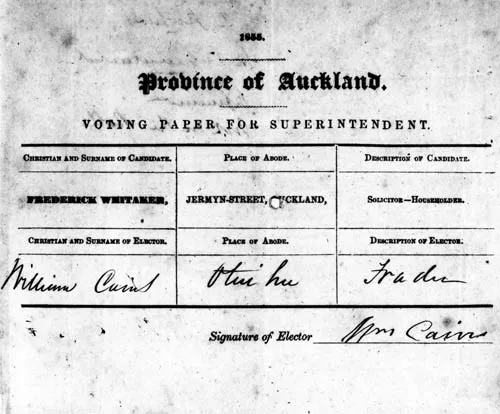 1855.
Province of Auckland.
VOTING PAPER FOR SUPERINTENDENT.
CHRISTIAN AND SURNAME OF CANDIDATE. PLACE OF ABODE. DESCRIPTION OF CANDIDATE.
FREDERICK WHITAKER, JERMYN-STREET, AUCKLAND, SOLICITOR—HOUSEHOLDER.
CHRISTIAN AND SURNAME OF ELECTOR. PLACE OF ABODE. DESCRIPTION OF ELECTOR.
William Cairns Otahuhu Trader
Signature of Elector Wm Cairns